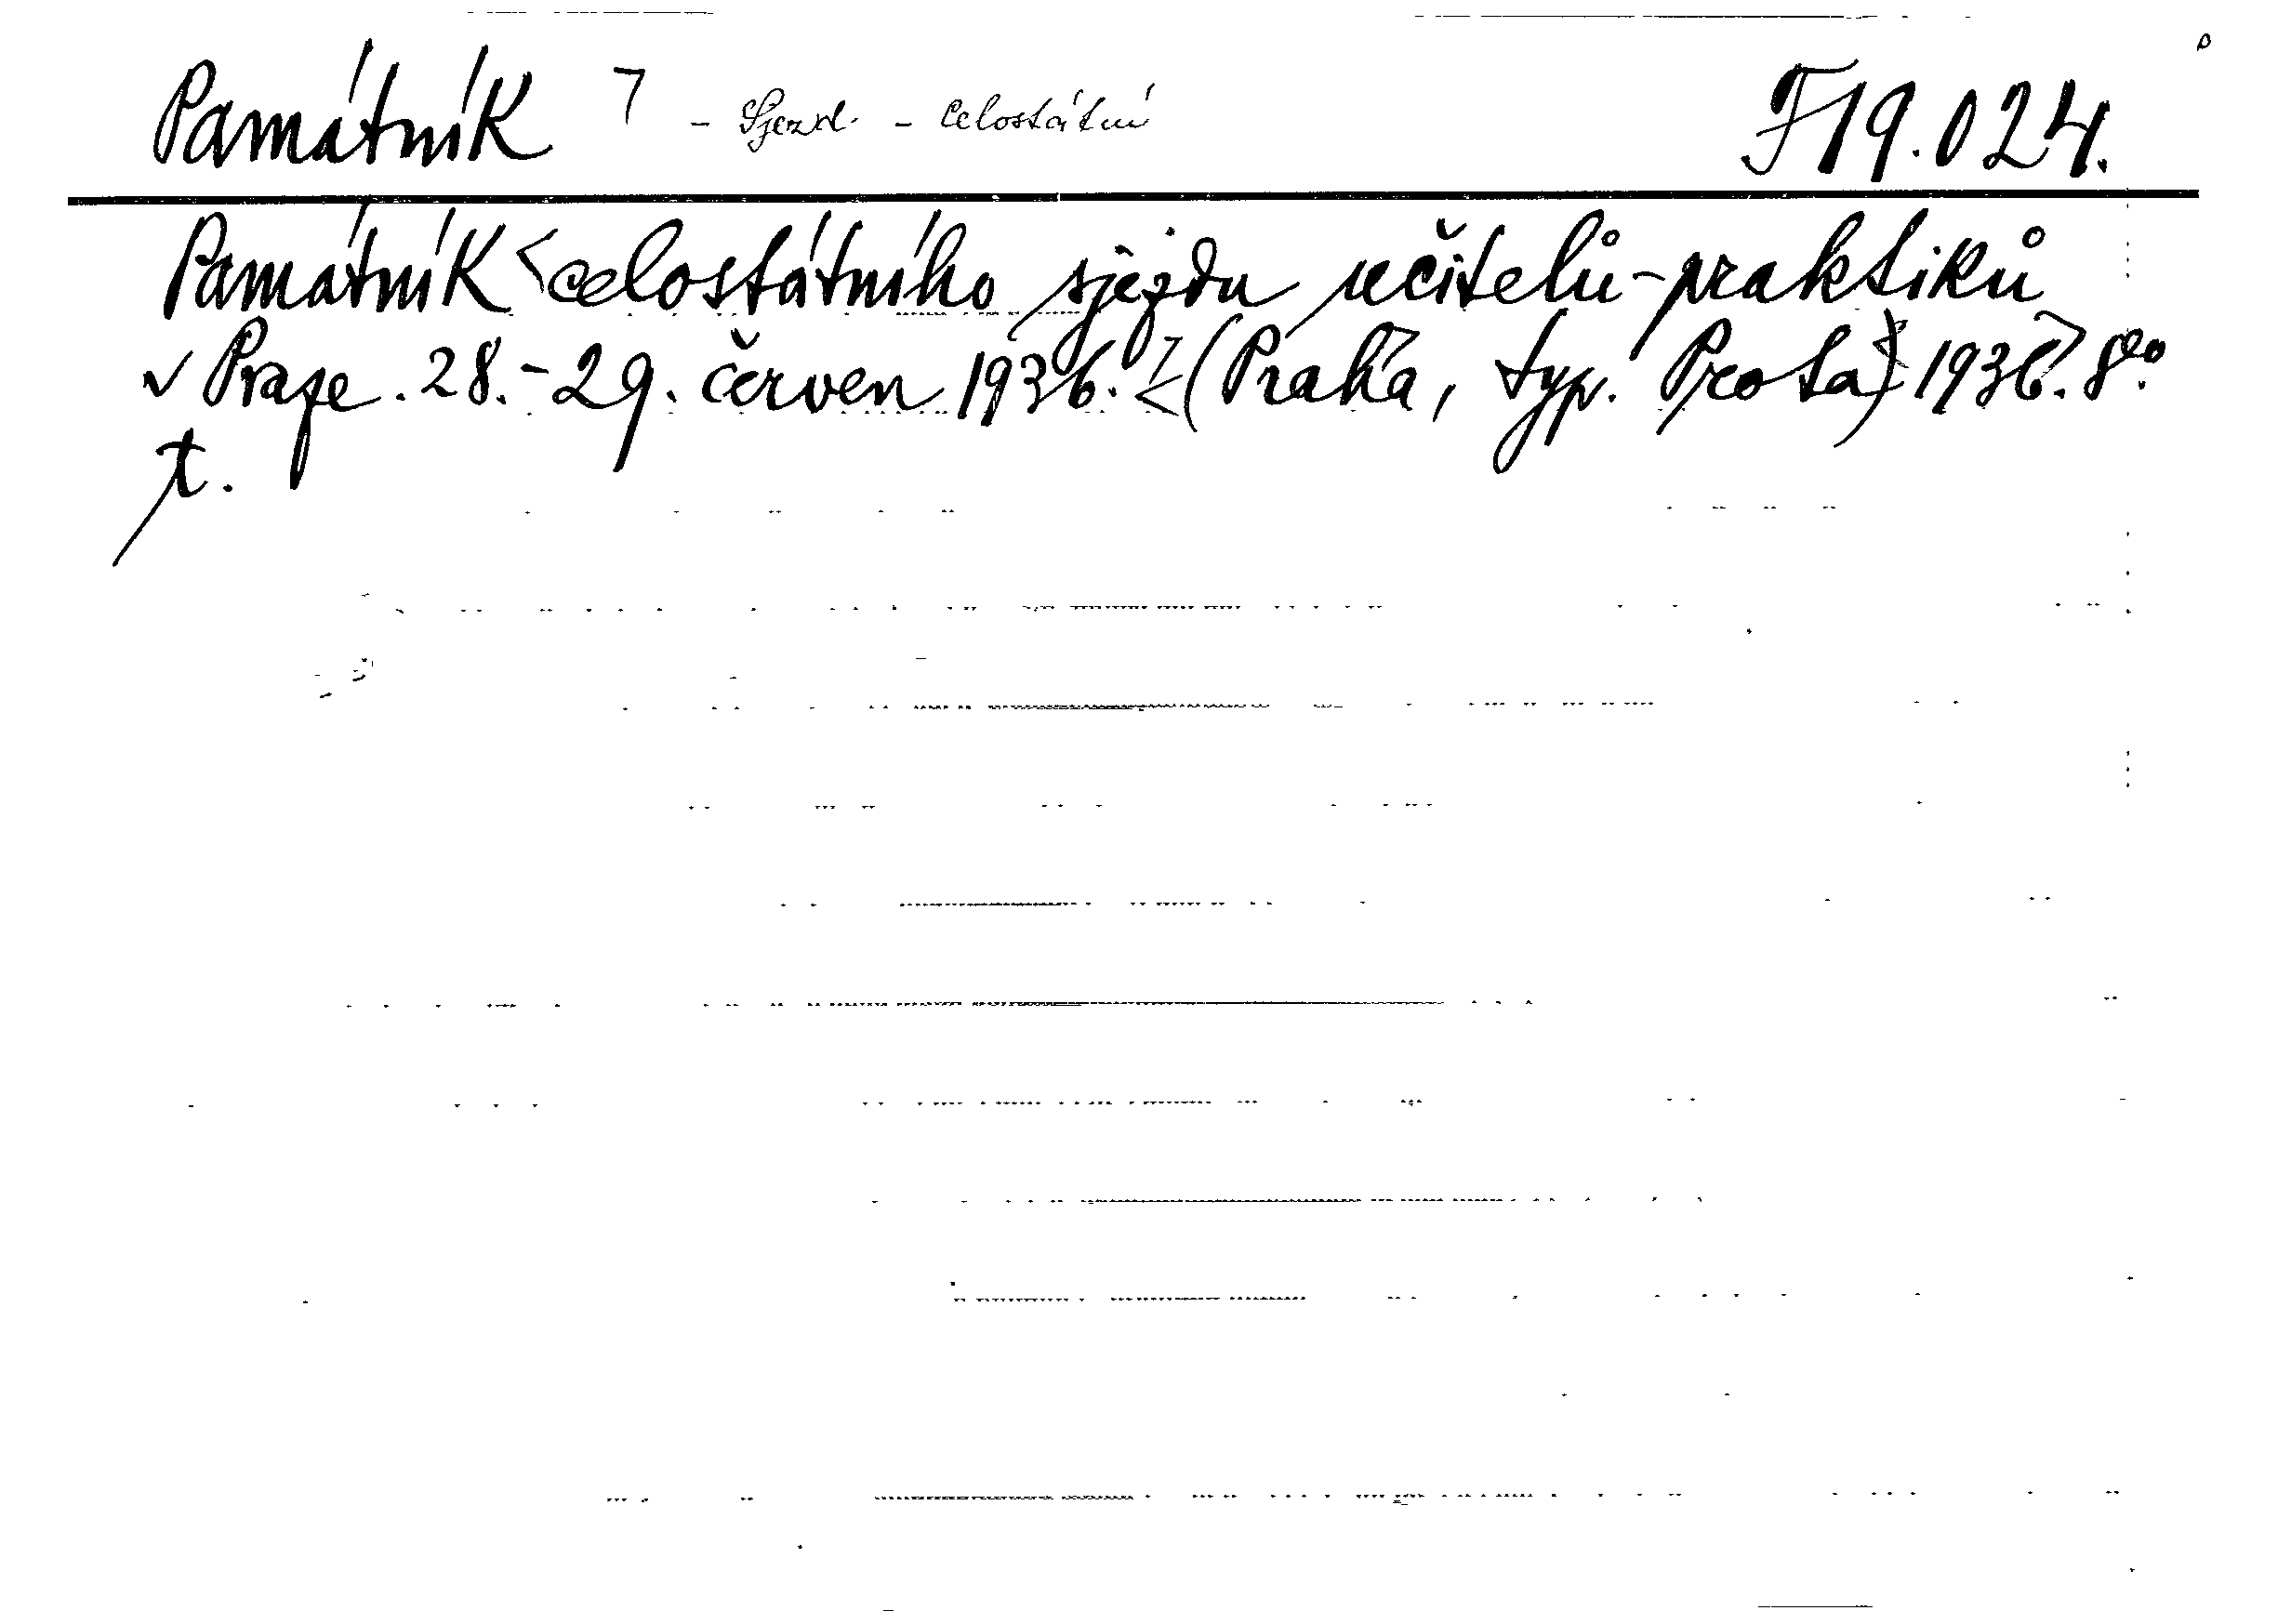 Památník - Sjezd - celostátní F 19.024.
Památník celostátního sjezdu učitelů-praktiků
v Praze. 28.-29. červen 1936. (Praha, typ. Prota) 1936. 8°.